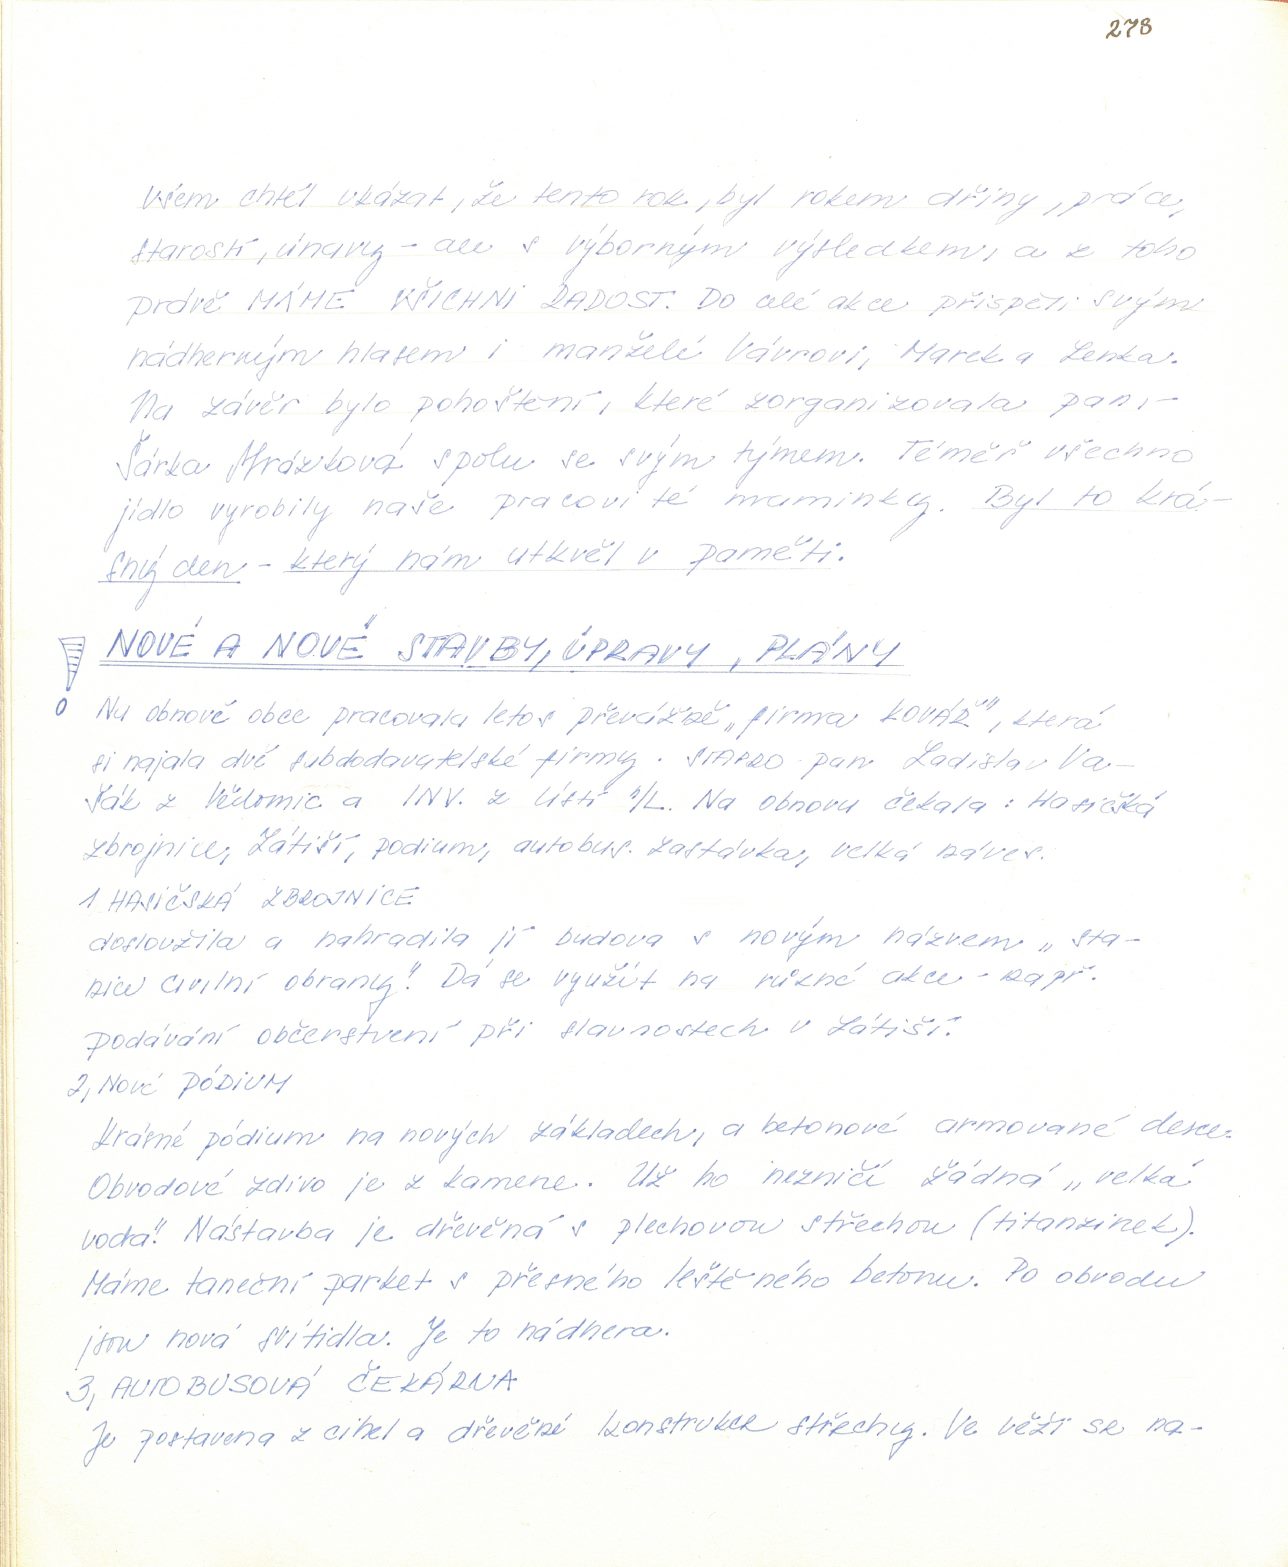 278
všem chtěl ukázat, že tento rok, byl rokem dřiny, práce,
starostí, únavy - ale s výborným výsledkem, a z toho
právě MÁME VŠICHNI RADOST. Do celé akce přispěli svým
nádherným hlasem i manželé Vávrovi, Marek a Lenka.
Na závěr bylo pohoštění, které zorganizovala paní
Šárka Mrázková spolu se svým týmem. Téměř všechno
jídlo vyrobily naše pracovité maminky. Byl to krá-
sný den - který nám utkvěl v paměti.
NOVÉ A NOVÉ STAVBY, ÚPRAVY, PLÁNY
Na obnově obce pracovala letos převážně „firma KOVÁŘ", která
si najala dvě subdodavatelské firmy. STAPRO pan Ladislav Va-
šák z Vědomic a INV. z Ústí n/L. Na obnovu čekala: Hasičská
zbrojnice, Zátiší, podium, autobus. zastávka, velká náves.
1 HASIČSKÁ ZBROJNICE
dosloužila a nahradila jí budova s novým názvem „sta-
nice civilní obrany". Dá se využít na různé akce - např.
podávání občerstvení při slavnostech v Zátiší.
2, Nové PÓDIUM
Krásné pódium na nových základech, a betonové armované desce.
Obvodové zdivo je z kamene. Už ho nezničí žádná „velká
voda". Nástavba je dřevěná s plechovou střechou (titanzinek).
Máme taneční parket s přesného leštěného betonu. Po obvodu
jsou nová svítidla. Je to nádhera.
3, AUTOBUSOVÁ ČEKÁRNA
Je postavena z cihel a dřevěné konstrukce střechy. Ve věži se na-